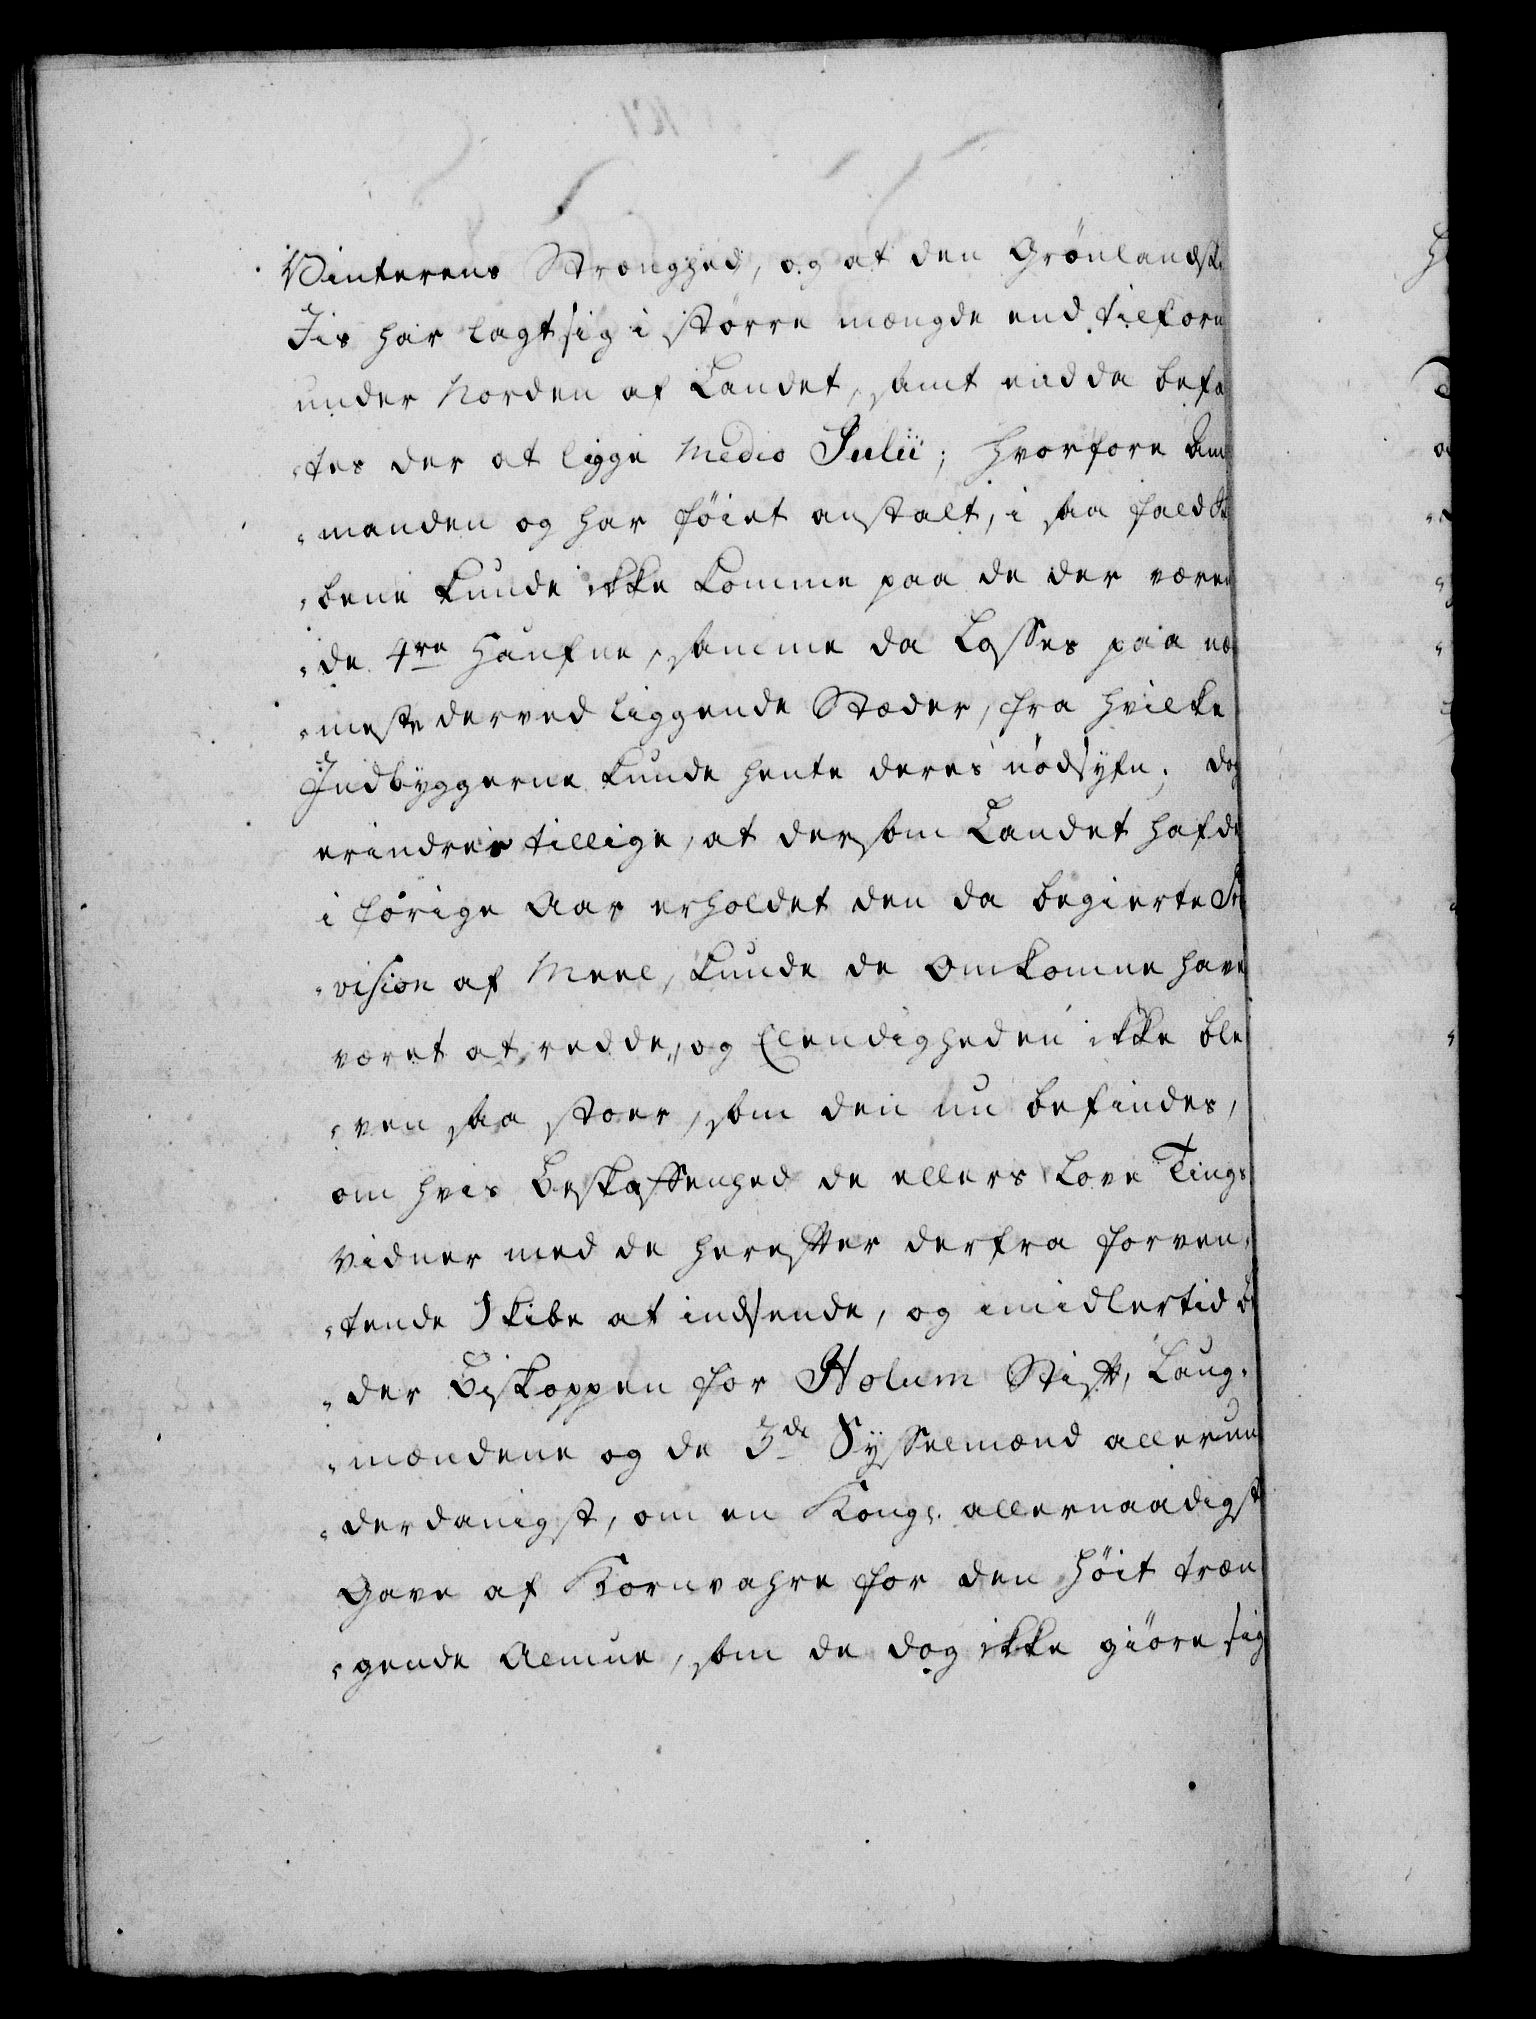 Vinterens Strænghed, og at den Grönlandske
Jis har lagt sig i större mængde end tilforn
under Norden af Landet, samt endda befa
tes der at ligge Medio Julii; hvorfore Amt
manden og har föiet anstalt, i saa fald Ski
bene kunde ikke komme paa de der væren
de 4re Haufne, samme da Losses paa næ
meste derved liggende Stæder, fra hvilke
Indbyggerne kunde hente deres nödsyfn; dog
erindres tillige, at dersom Landet hafde
i forige Aar erholdet den da begierte Pro
vision af Meel, kunde de omkomne have
været at redde, og Elendigheden ikke ble
ven saa stoer, som den nu befindes,
om hvis Beskaffenhed de ellers love Tings
vidner med de herefter derfra forven
tende Skibe at indsende, og imidlertid be
der Biskoppen for Holum Stift, Laug
mændene og de 3de Sysselmænd allerun
derdanigst, om en Kongl. allernaadigst
Gave af Kornvahre for den höit træn
gende Almue, som de dog ikke giöre sig